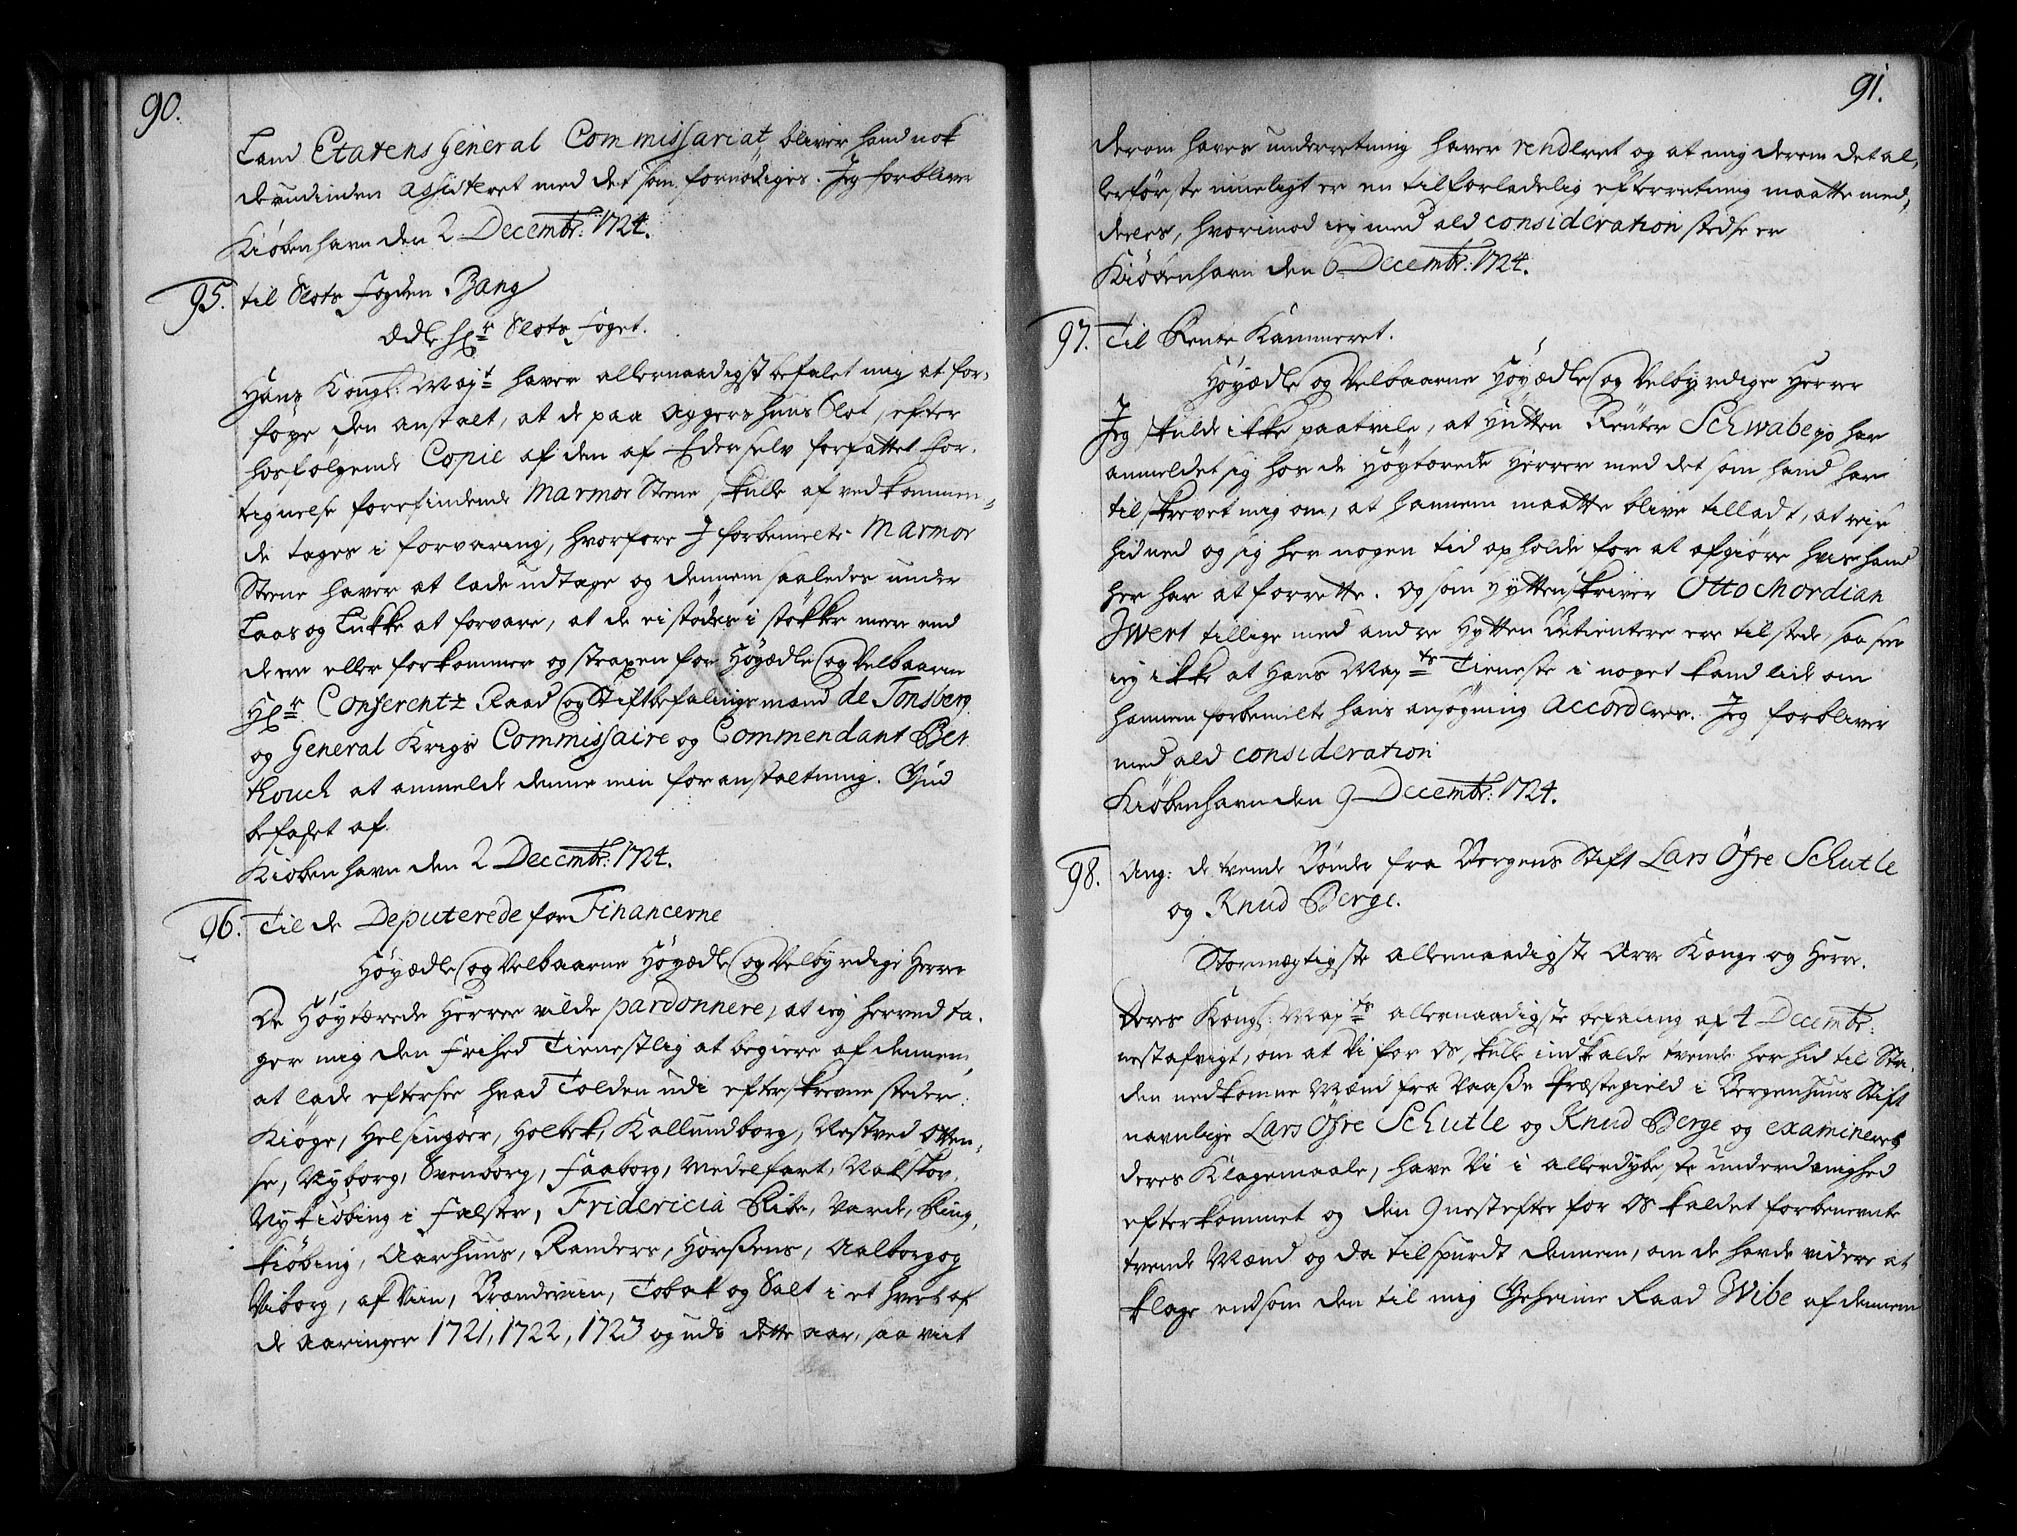 90.
Land Etatens General Commissariat bliver hand nok
derudinden assisteret med det som fornødiges. Jeg forbliver
Kiøbenhavn den 2 Decembr: 1724.
95. til Slots Fogden Bang
Ædle Hr Slots Foget.
Hans Kongl: Mayt haver allernaadigst befalet mig at for-
føye den anstalt, at de paa Aggershuus Slot, efter
hosfølgende Copie af den af Eder selv forfattet for-
tegnelse forefindende Marmor Steene skulle af vedkommen-
de tages i forvaring, hvorfore I forbemelte Marmor
Steene haver at lade udtage og dennem saaledes under
Laas og Lukke at forvare, at de ei stødes i støkker meere end
de ere eller forkommer og straxen for Høyædle og Velbaarne
Hr Conferentz Raad og Stiftbefalings mand de Tonsberg
og General Krigs Commissaire og Commendant Ber
thouch at anmelde denne min foranstaltning. Gud
befalet af.
Kiøbenhavn den 2 Decembr: 1724.
96. Til de Deputerede for Financerne
Høyædle og Velbaarne Høyædle og Velbyrdige Herrer
De Høytærede Herrer vilde pardonnere, at ieg herved ta-
ger mig den Frihed Tienestlig at begiere af dennem,
at lade eftersee hvad Tolden udi efterskrevne steder:
Kiøge, Helsingøer, Holbek, Kallundborg, Nestved Otten-
se, Nyborg, Svenborg, Faaborg, Medelfart, Nakskov,
Nykiøbing i Falster, Fridericia Ribe, Varde, Ring-
kiøbing, Aarhuus, Randers, Horsens, Aalborg og
Viborg, af Viin, Brændeviin, Tobak og Salt i et hvert af
de Aaringer 1721, 1722, 1723 og udi dette aar, saa vit
91.
derom haves underretning haver rendret og at mig derom det al-
lerførste mueligt er en tilforladelig efterretning maatte med-
deeles, hvorimod ieg med ald consideration stedse er
Kiøbenhavn den 6 Decembr: 1724.
97. Til Rente Kammeret.
Høyædle og Velbaarne Høyædle og Velbyrdige Herrer
Jeg skulde ikke paatvile, at Hytten Reuter Schwabe jo har
anmeldet sig hos de Høytærede Herrer med det som hand har
tilskrevet mig om, at hannem maatte blive tilladt, at reise
hidned og sig her nogen tid opholde for at afgiøre hvis hand
her har at forrette. og som Hyttenskriver Otto Mordian
Iwert tillige med andre Hytten Betientere ere tilstede, saa seer
ieg ikke at Hans Mayts Tieneste i noget kand lide om
hannem forbemelte hans ansøgning accorderes. Jeg forbliver
med ald consideration
Kiøbenhavn den 9 Decembr: 1724.
98. Ang: de tvende Bønder fra Bergens Stift Lars Øfre Schutle
og Knud Berge.
Stormægtigste allernaadigste Arve Konge og Herre.
Deres Kongl: Mayts allernaadigste befaling af 4 Decembr:
nestafvigt, om at Vi for os skulle indkalde tvende her hid til Sta-
den nedkomne Mænd fra Vaasse Præstegield i Bergenhuus Stift
navnlige Lars Øfre Schutle og Knud Berge og examinere
deres Klagemaale, have Vi i allerdybeste underdanighed
efterkommet og den 9 nestefter for os kaldet forbenevnte
tvende Mænd og da tilspurdt dennem, om de havde videre at
klage end som den til mig Geheime Raad Wibe af dennem